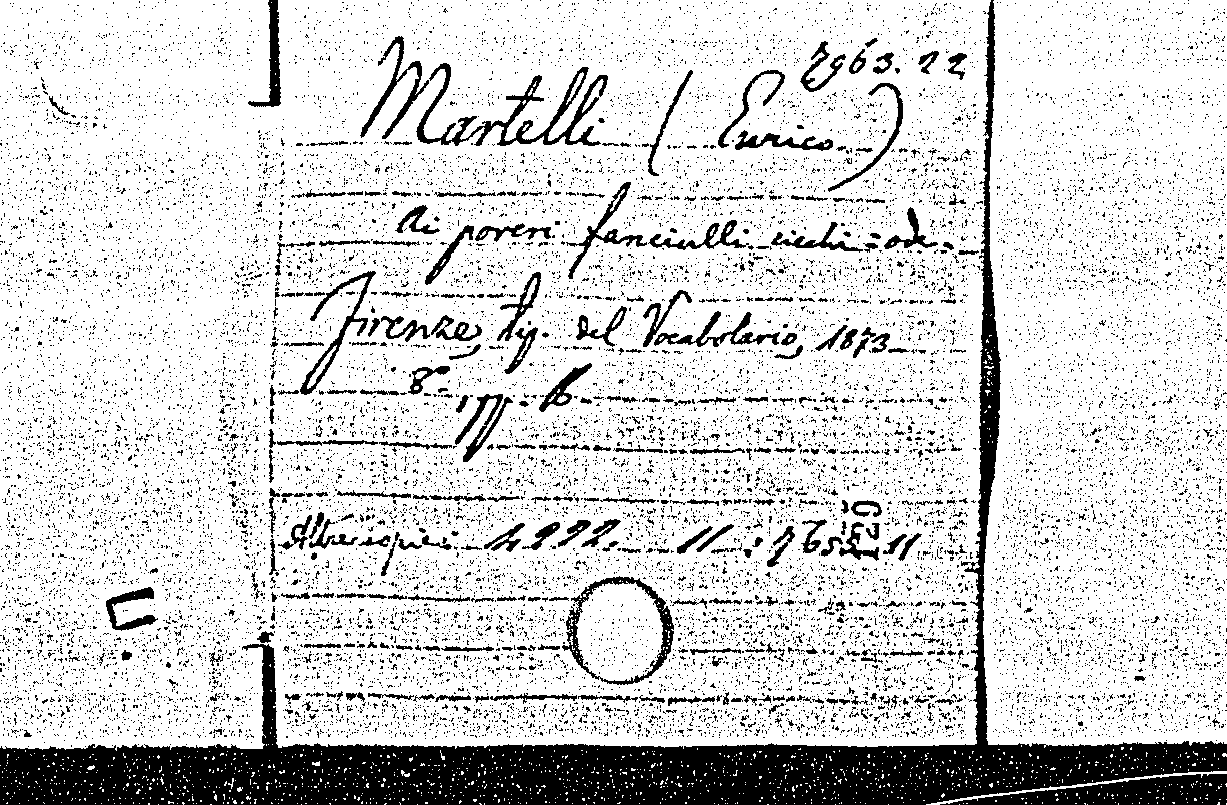 7963.22
Martelli (Enrico)
Ai poveri fanciulli ciechi: ode.
Firenze, tip. del Vocabolario, 1873
8°. pp.
Altre copie: 11
129